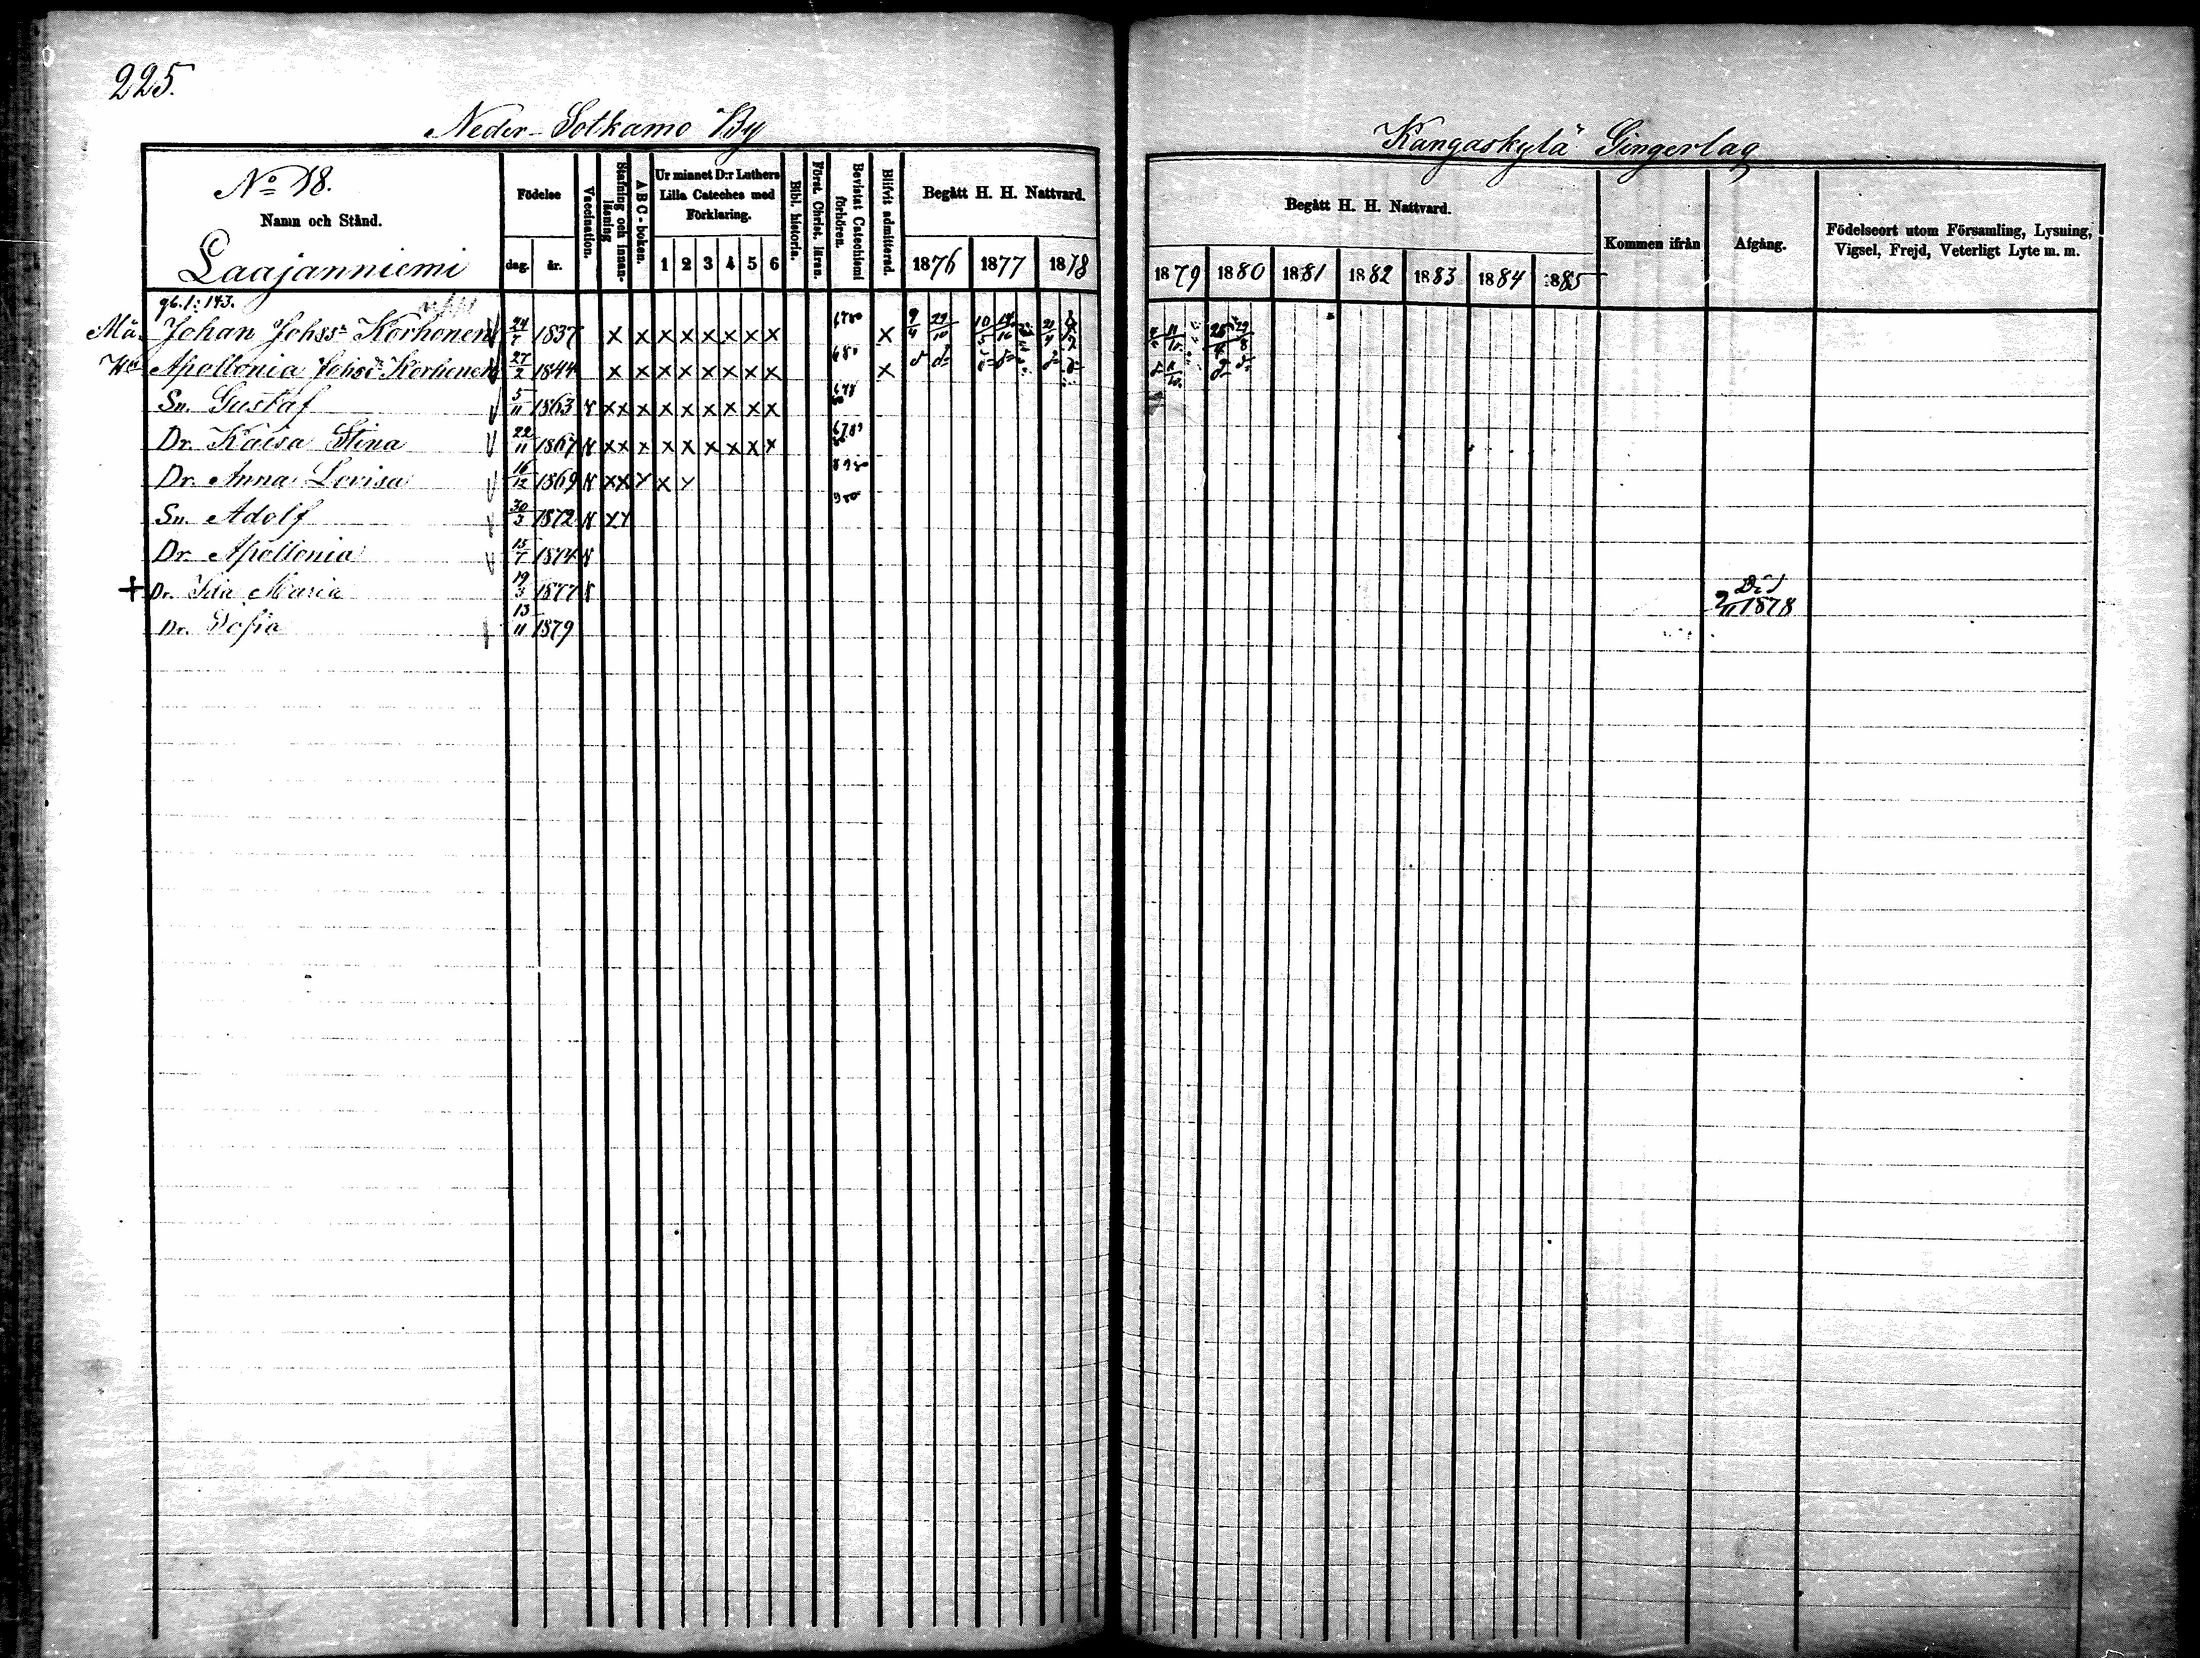 225.
Neder-Sotkamo By
Kangaskylä Gingerlag
No 18.
Namn och Stånd.
Laajanniemi
Födelse
dag. år.
Vaccination.
Stafning och innanläsning
ABC-boken.
Ur minnet D:r Luthers Lilla Cateches med Förklaring.
1 2 3 4 5 6
Bibl. historia.
Först. Christ. läran.
Bevistat Catechismi förhören.
Blifvit admitterad.
Begått H. H. Nattvard.
1876 1877 1878
Begått H. H. Nattvard.
1879 1880 1881 1882 1883 1884 1885
Kommen ifrån
Afgång.
Födelseort utom Församling, Lysning, Vigsel, Frejd, Veterligt Lyte m. m.
96.1: 143.
Johan Johss: Korhonen 1837 x x x x x x x x x 9/4 29/10
Apollonia Johsd: Korhonen 27/2 1844 x x x x x x x x x
Sn. Gustaf 5/11 1863 x x x x x x x x x
Dr. Kaisa Stina 22/11 1867 x x x x x x x x x
Dr. Anna Lovisa 16/12 1869 x x x x
Sn. Adolf 30/3 1872
Dr. Apollonia 15/7 1874
+ Dr. Ida Maria 19/3 1877 Död 2/11 1878
Dr. Sofia 13/11 1879